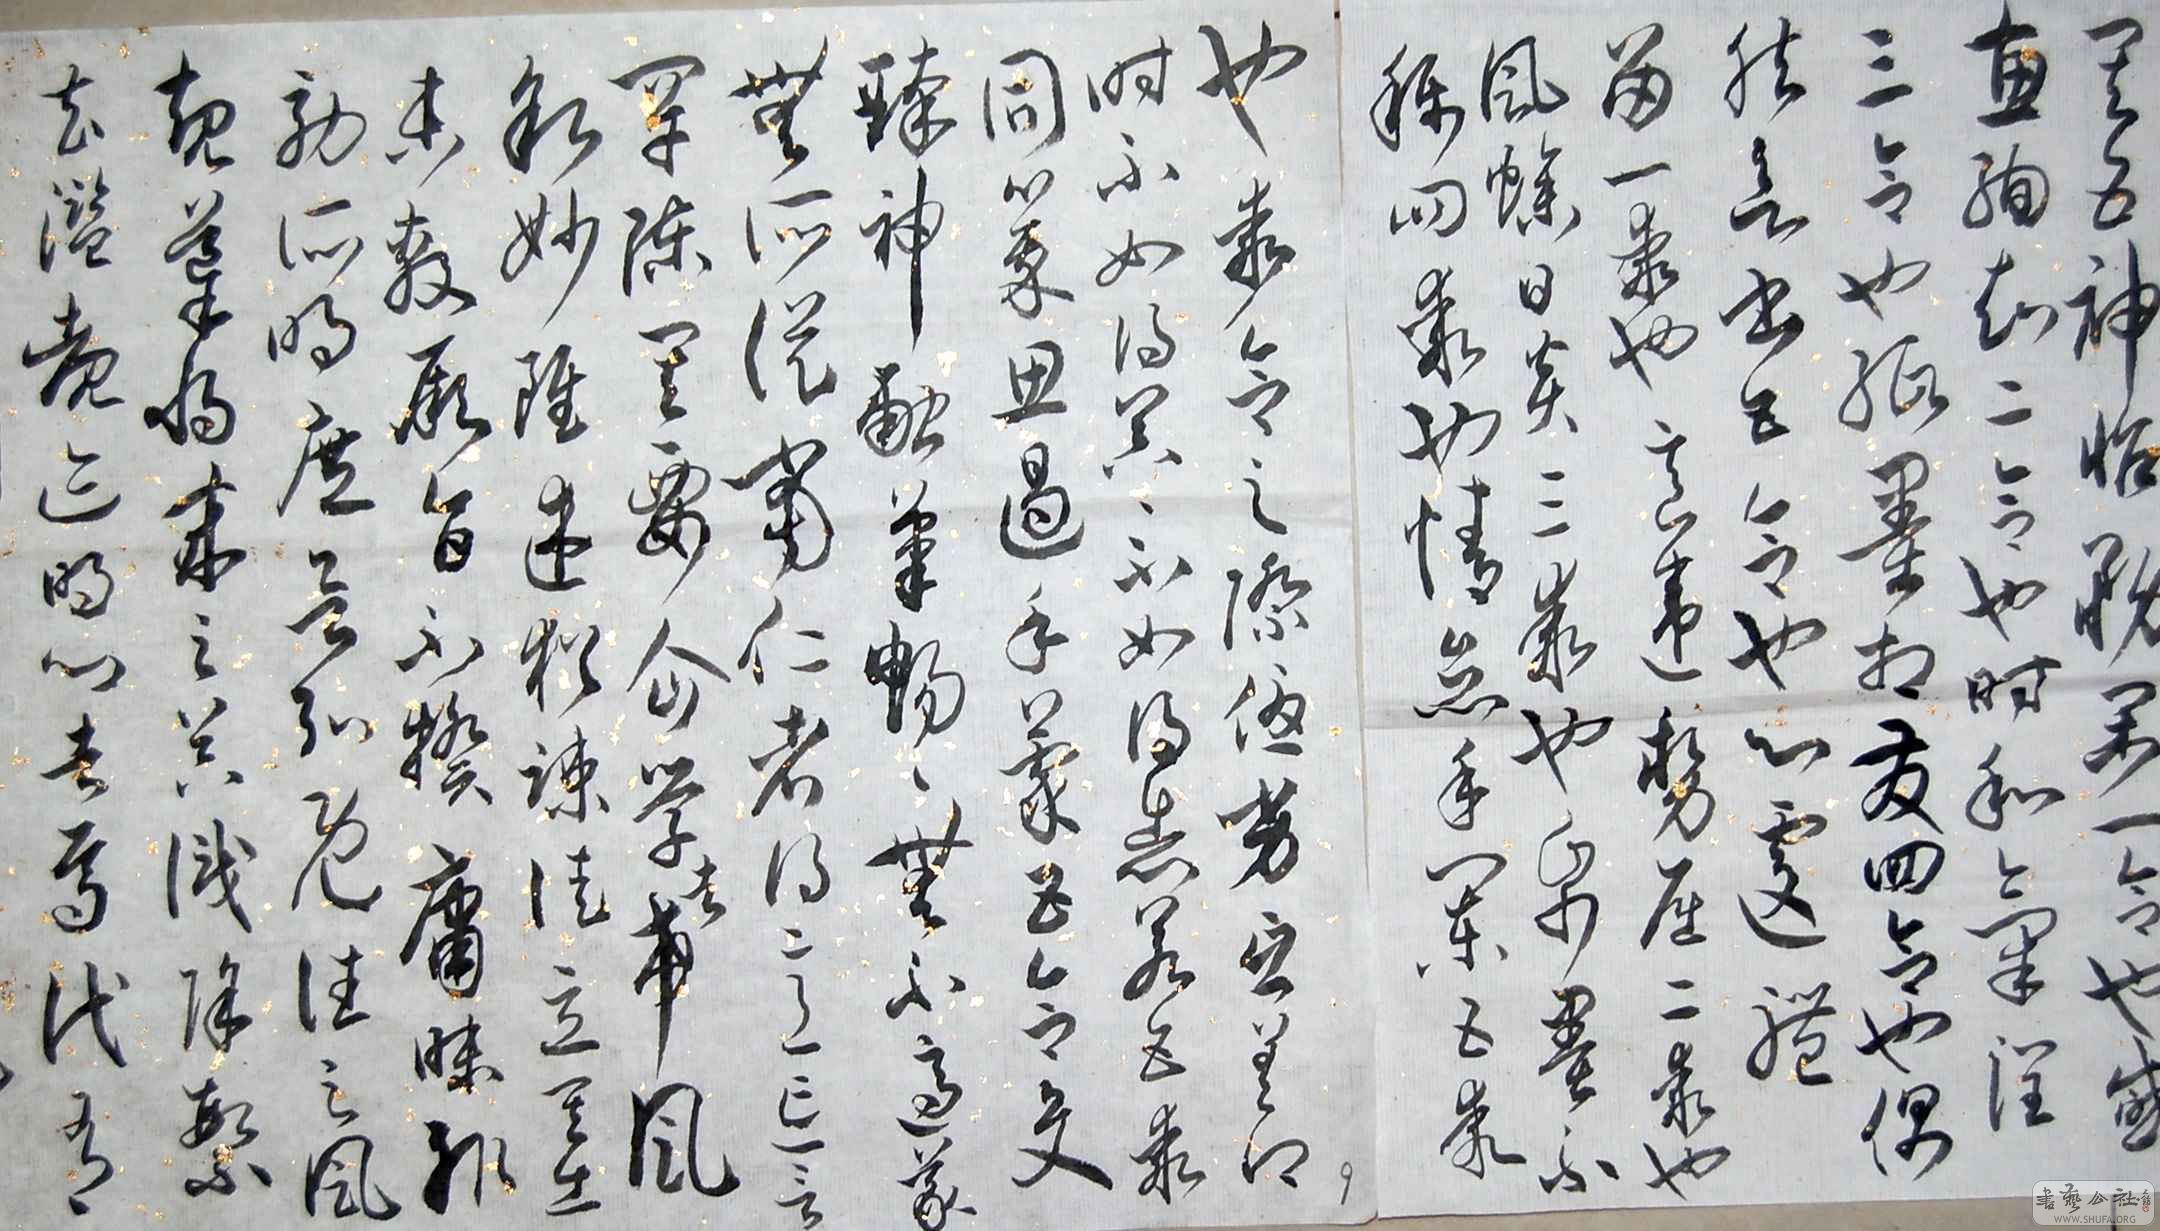 其五神怡務閑一合也感
惠徇知二合也時和氣潤
三合也紙墨相發四合也偶
然欲書五合也心遽體
留一乖也意違勢屈二乖也
風燥日炎三乖也紙墨不
稱四乖也情怠手闌五乖
也乖合之際優劣互差得
時不如得器〻不如得志若五乖
同萃思遏手蒙五合交
臻神融筆暢〻無不適蒙
無所從當仁者得意忘言
罕陳其要企學者希風
敘妙雖述猶疎徒立其工
未敷厥旨不揆庸昧輒
効所明庶欲弘既往之風
規導將來之器識除繁
去濫覩迹明心者焉代有
9
書藝公社
WWW.SHUFA.ORG